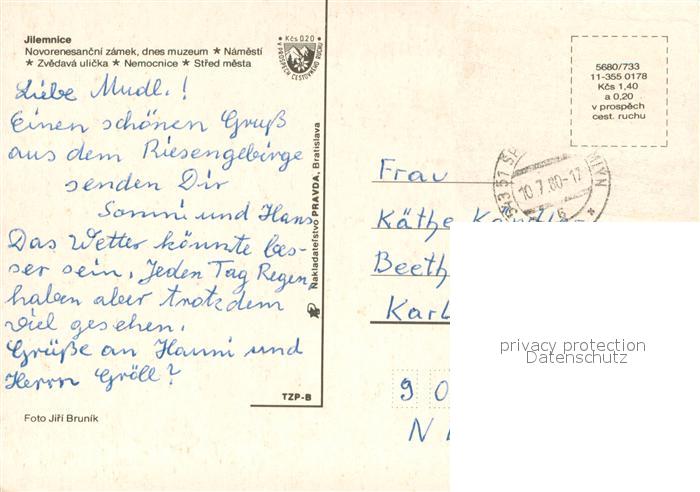 Jilemnice
Novorenesanční zámek, dnes muzeum ★ Náměstí
★ Zvědavá ulička ★ Nemocnice ★ Střed města
• Kčs 0,20 •
V PROSPĚCH CESTOVNÍHO RUCHU
Liebe Mudl.!
Einen schönen Gruß
aus dem Riesengebirge
senden Dir
Sommi und Hans
Das Wetter könnte bes-
ser sein, Jeden Tag Regen,
haben aber trotzdem
viel gesehen.
Grüße an Hanni und
Herrn Gröll?
Foto Jiří Bruník
TZP-B
Nakladatelství PRAVDA, Bratislava
5680/733
11-355 0178
Kčs 1,40
a 0,20
v prospěch
cest. ruchu
543 51 SP
MLÝN
10.7.80-17
6
Frau
Käthe
Beeth
Karl
9 0
N
privacy protection
Datenschutz